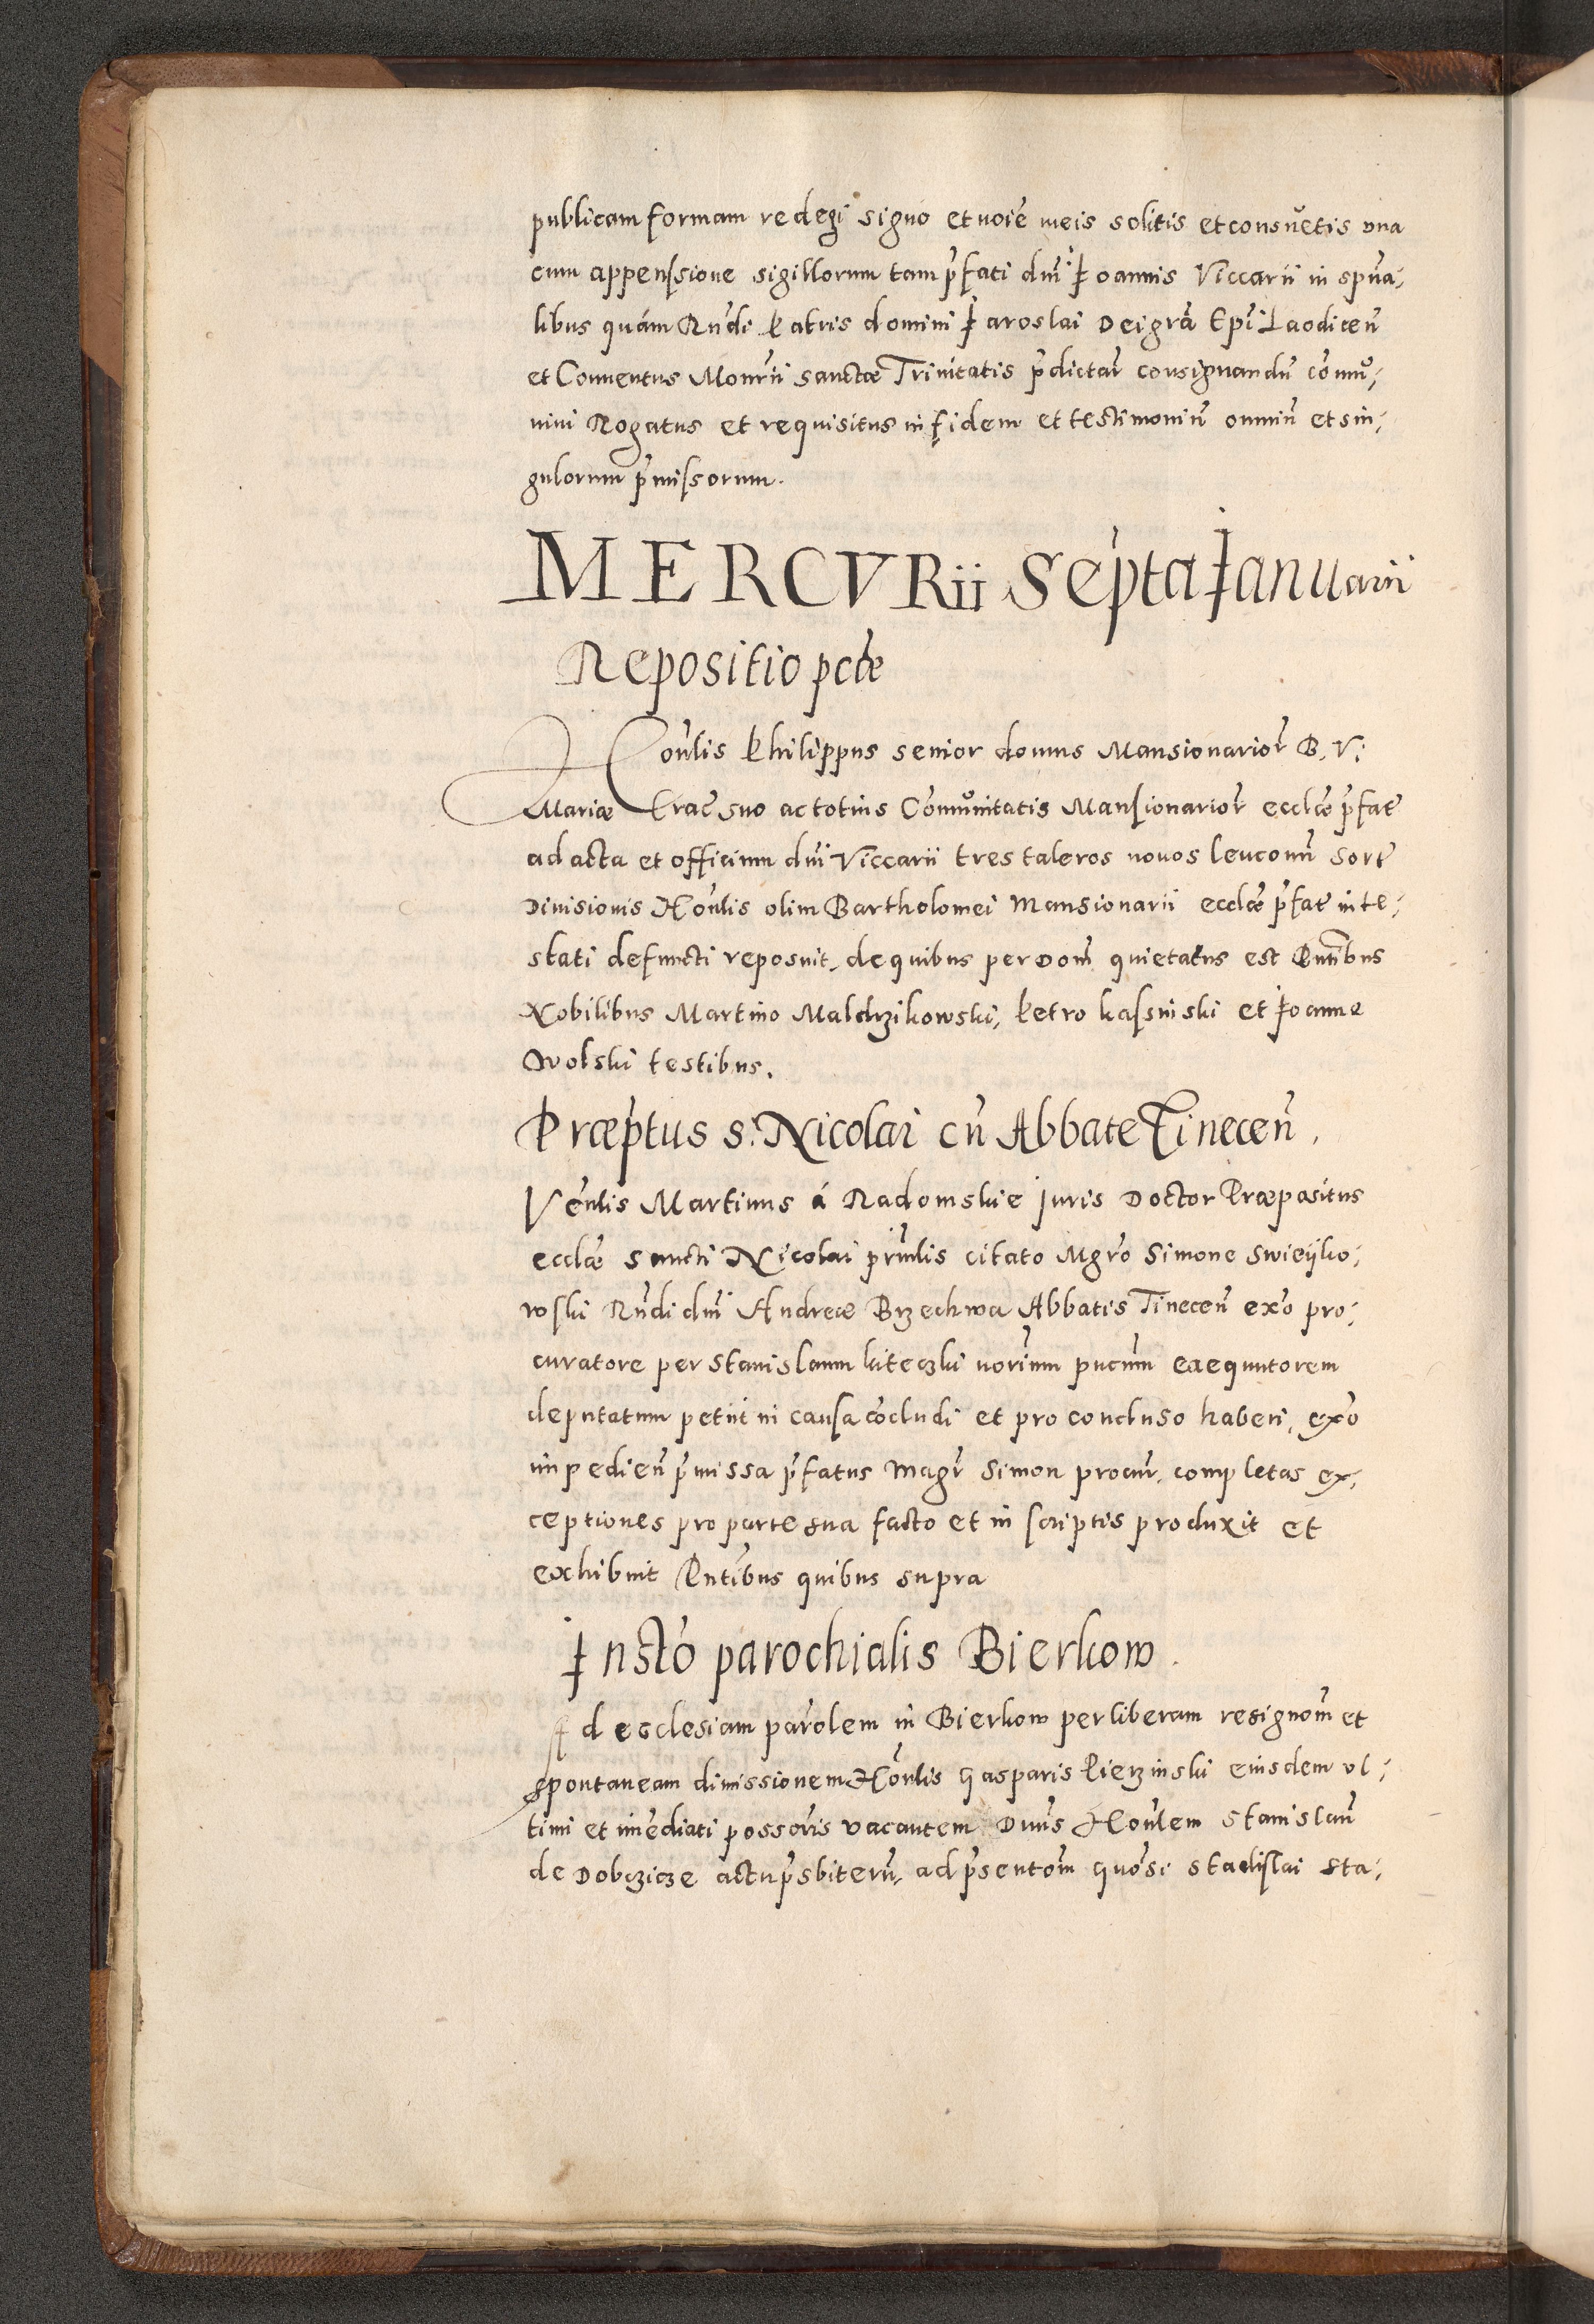 publicam formam redegi signo et noiē meis solitis et consuetis vna
cum appensione sigillorum tam p̄fati dn̄i Joannis Viccarii in spūa-
libus quám Rn̄di Patris domini Jaroslai Dei grā Epī Laodicen̄
et Conuentus Monrīi sanctæ Trinitatis p̄dictar̄ consignandū cōmu-
niui Rogatus et requisitus in fidem et testimoniū omniū et sin-
gulorum p̄missorum.
MERCVRii Septa Januarii
Repositio pctæ
Honlis Philippus senior domus Mansionarior̄ B. V.
Mariæ Crac̄ suo ac totius Cōmunitatis Mansionarior̄ ecclæ p̄fat̄
ad acta et officium dn̄i Viccarii tres taleros nouos leuconū sort̄
Diuisionis Honlis olim Bartholomei Mansionarii ecclæ p̄fat̄ inte-
stati defuncti reposuit, de quibus per Dom̄ quietatus est Pn̄tibus
Nobilibus Martino Maldrzikowski, Petro kassniski et Joanne
Wolski testibus.
Præptus s. Nicolai cū Abbate Tinecen̄.
Venlis Martinus á Radomskie Juris Doctor Præpositus
ecclæ sancti Nicolai prn̄lis citato Mgrō Simone Swieijko-
wski Rn̄di dn̄i Andreæ Brzechwa Abbatis Tinecen̄ exō pro-
curatore per Stanislaum kiteczki norium pucum exequutorem
deputatum petiit in causa cōcludi et pro concluso haberi, exō
impedien̄ p̄missa p̄fatus Magr̄ Simon procur̄. completas ex-
ceptiones pro parte sua facto et in scriptis produxit et
exhibuit Pn̄tibus quibus supra
Jnstō parochialis Bierkow.
Ad ecclesiam parolem in Bierkow per liberam resignom̄ et
spontaneam dimissionem Honlis Gasparis Pierzinski eiusdem vl-
timi et imēdiati possoris vacantem Dnūs Honlem Stanislaū
de Dobczicze actu p̄sbiterū, ad p̄sentom̄ quōsi Stadislai Sta-